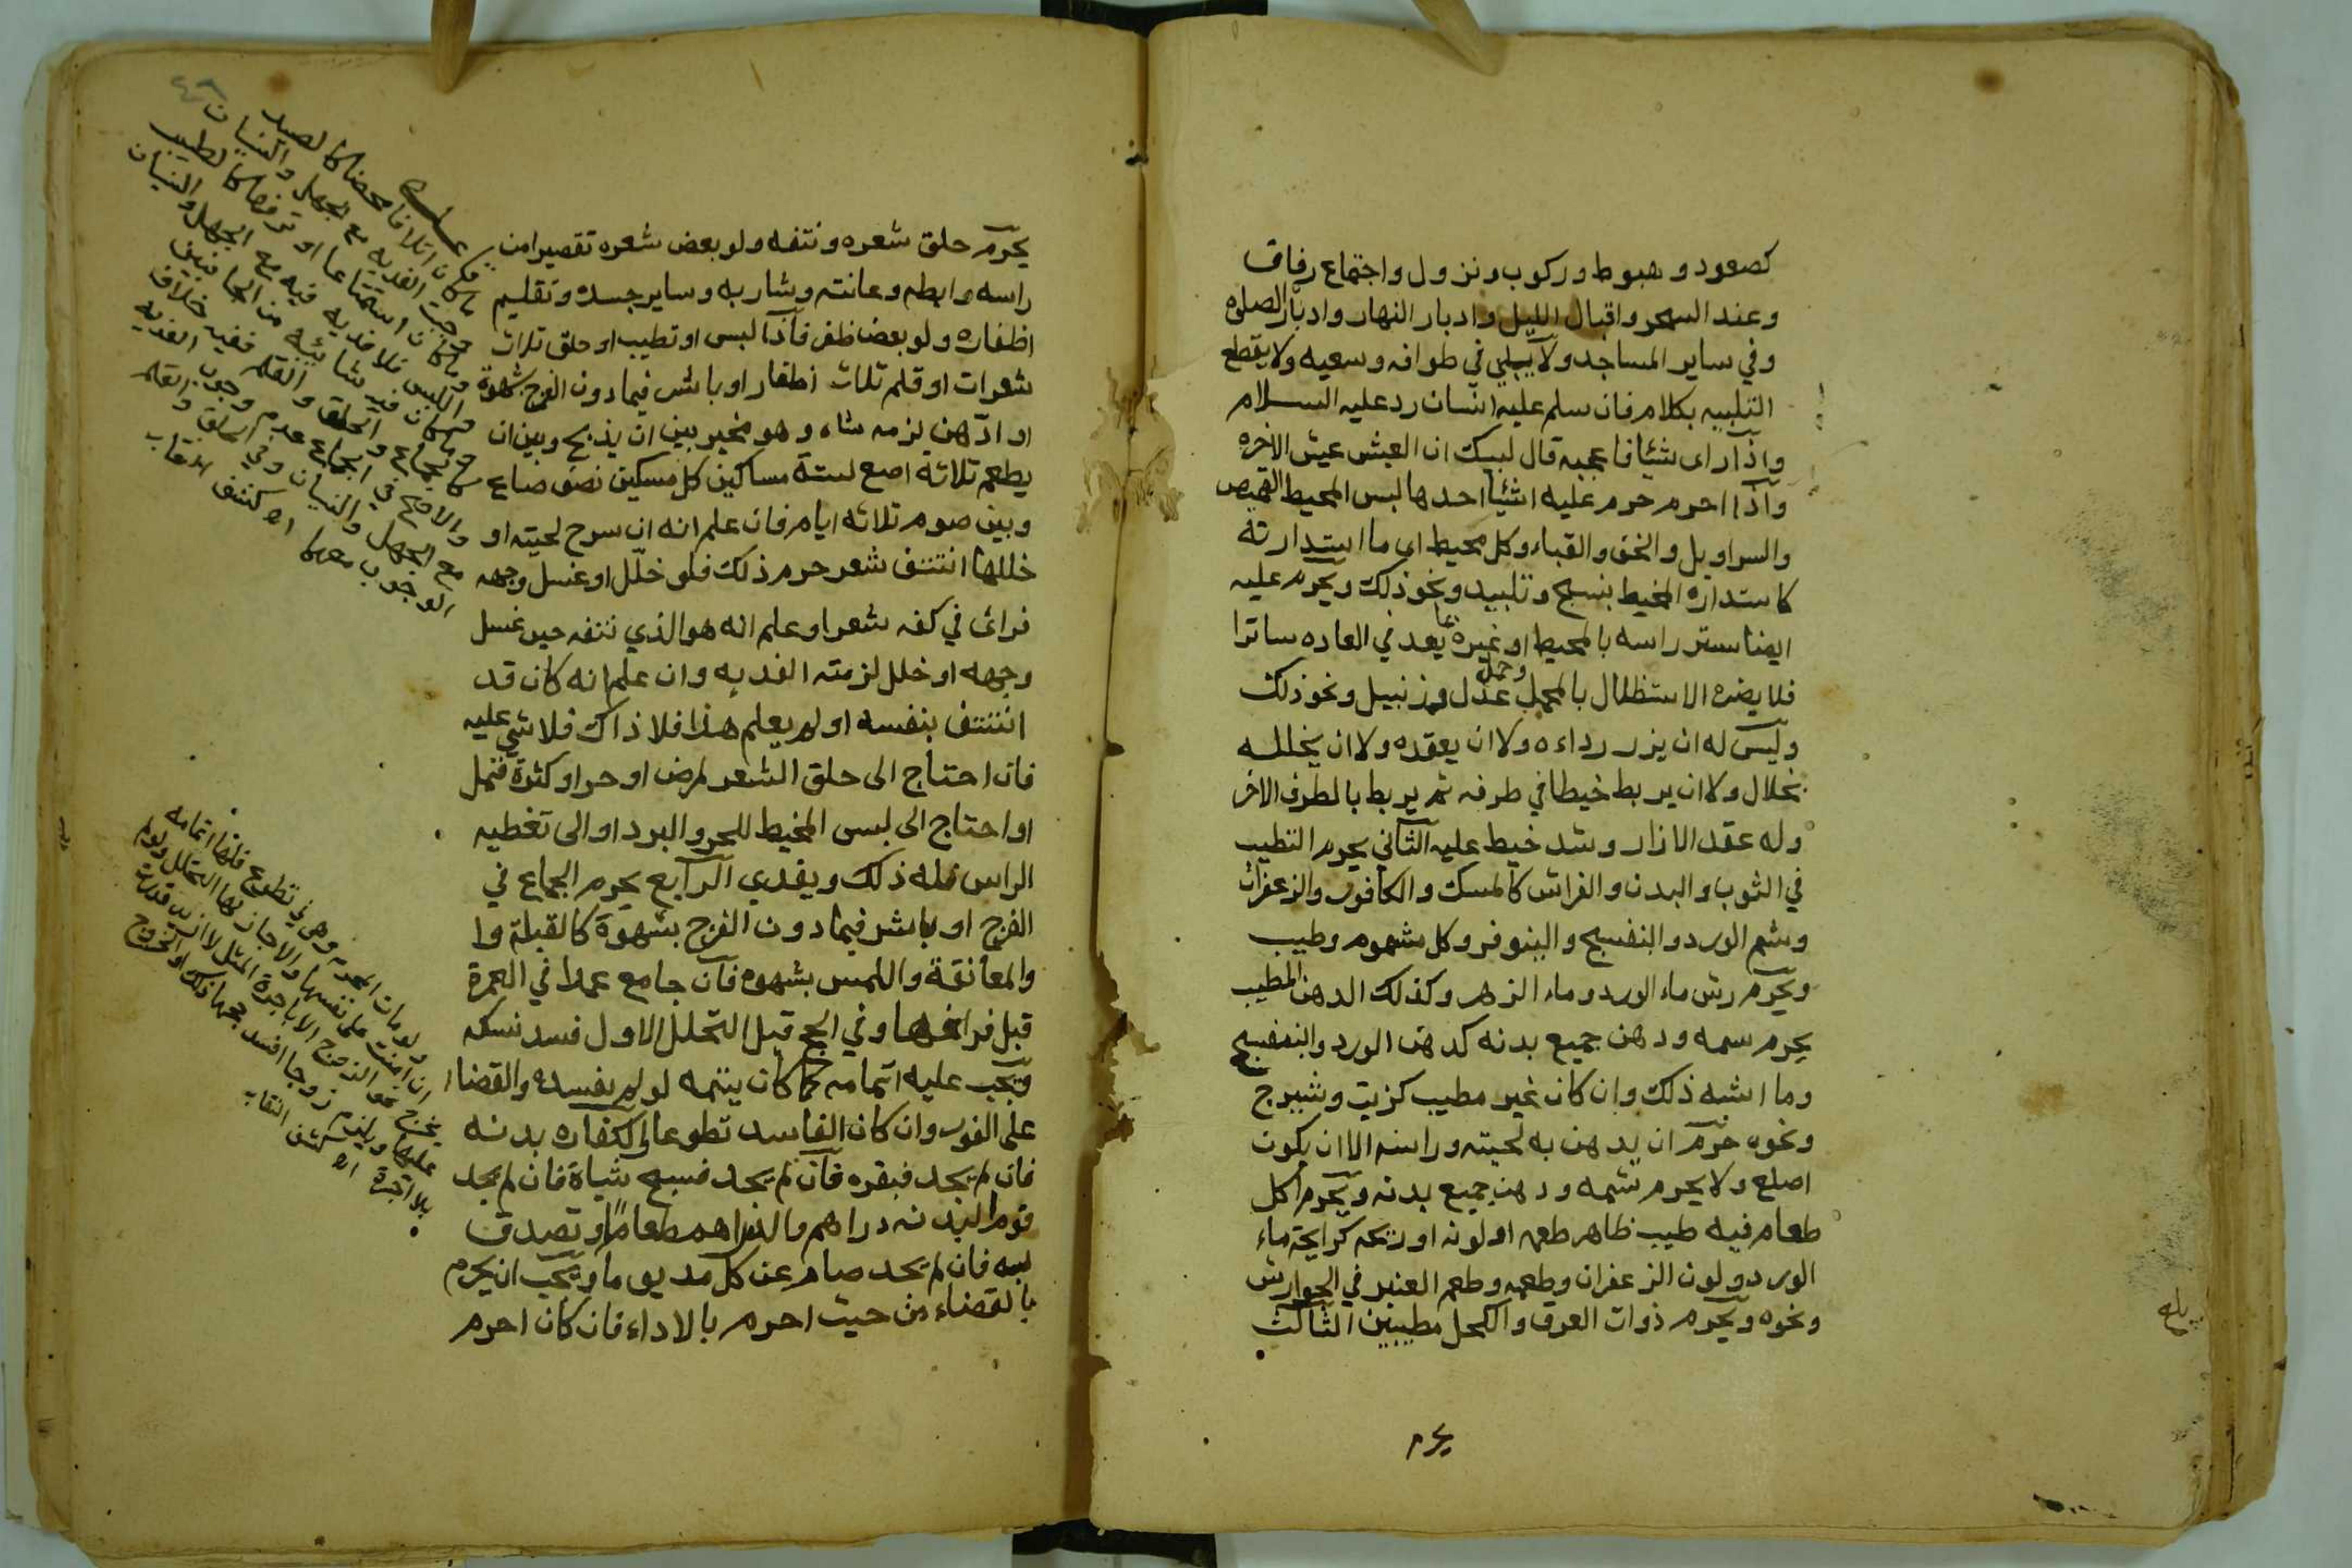 كصعود وهبوط وركوب ونزول واجتماع رفاق
وعند السحر واقبال الليل وادبار النهار وادبار الصلوة
وفي ساير المساجد ولا يلبي في طوافه وسعيه ولا يقطع
التلبيه بكلام فان سلم عليه انسان رد عليه السلام
واذا راى شيئا فاعجبه قال لبيك ان العيش عيش الاخره
واذا احرم حرم عليه اشيا احدها لبس المخيط القميص
والسراويل والخف والقباء وكل محيط اي ما استدارته
كاستدارة المخيط بنسج وتلبيد ونحو ذلك ويحرم عليه
ايضا ستر راسه بالمخيط او غيره مما يعد في العاده ساترا
فلا يضره الاستظلال بالمحمل وحمل عدل وزنبيل ونحو ذلك
وليس له ان يزرر رداءه ولا ان يعقده ولا ان يخلله
بخلال ولا ان يربط خيطا في طرفه ثم يربط بالطرف الاخر
وله عقد الازار وشد خيط عليه الثاني يحرم التطيب
في الثوب والبدن والفراش كالمسك والكافور والزعفران
وشم الورد والبنفسج والينوفر وكل مشموم وطيب
ويحرم رش ماء الورد وماء الزهر وكذلك الدهن المطيب
يحرم شمه ودهن جميع بدنه كدهن الورد والبنفسج
وما اشبه ذلك وان كان غير مطيب كزيت وشيرج
ونحوه حرم ان يدهن به لحيته وراسه الا ان يكون
اصلع ولا يحرم شمه ودهن جميع بدنه ويحرم اكل
طعام فيه طيب ظاهر طعمه او لونه او ريحه كرايحة ماء
الورد ولون الزعفران وطعمه وطعم العنبر في الجوارش
ونحوه ويحرم ذوات العرق والكحل مطيبين الثالث
يحرم
يحرم حلق شعره ونتفه ولو بعض شعره تقصيرا من
راسه وابطه وعانته وشاربه وساير جسده وتقليم
اظفاره ولو بعض ظفر فاذا لبس او تطيب او حلق ثلاث
شعرات او قلم ثلاث اظفار او باشر فيما دون الفرج بشهوة
او ادهن لزمه شاه وهو مخير بين ان يذبح وبين ان
يطعم ثلاثه اصع لستة مساكين كل مسكين نصف صاع
وبين صوم ثلاثه ايام فان علم انه ان سرح لحيته او
خللها انتتف شعر حرم ذلك فلو خلل او غسل وجهه
فراى في كفه شعرا وعلم انه هو الذي نتفه حين غسل
وجهه او خلل لزمته الفديه وان علم انه كان قد
انتتف بنفسه او لم يعلم هذا فلا ذاك فلا شي عليه
فان احتاج الى حلق الشعر لمرض او حر او كثرة قمل
او احتاج الى لبس المخيط للحر والبرد او الى تغطيه
الراس فله ذلك ويفدي الرابع يحرم الجماع في
الفرج او باشر فيما دون الفرج بشهوة كالقبلة وا
والمعانقة واللمس بشهوه فان جامع عمدا في العمرة
قبل فراغها وفي الحج قبل التحلل الاول فسد نسكه
ويجب عليه اتمامه كما كان يتمه لو لم يفسده والقضاء
على الفور وان كان الفاسد تطوعا والكفاره بدنه
فان لم يجد فبقره فان لم يجد فسبع شياة فان لم يجد
قوم البدنه دراهم والدراهم طعاما وتصدق
به فان لم يجد صام عن كل مد يوما ويجب ان يحرم
بالقضاء من حيث احرم بالاداء فان كان احرم
ما كان اتلافا محضا كالصيد
وجبت الفديه مع الجهل والنسيان
وما كان استمتاعا او ترفها كالطيب
واللبس فلا فديه فيه مع الجهل والنسيان
وما كان فيه شائبه من الجانبين
كالجماع والحلق والقلم ففيه خلاف
والاصح في الجماع عدم وجوب الفديه
مع الجهل والنسيان وفي الحلق والقلم
الوجوب معهما اه كشف النقاب
ولو مات المحرم وهو في تطوع فلها اتمامه
ان امنت على نفسها والا جاز لها التحلل ولم
عليها ويلزم زوجا افسد حجها ذلك او الخروج
بلا اجرة اه كشف النقاب